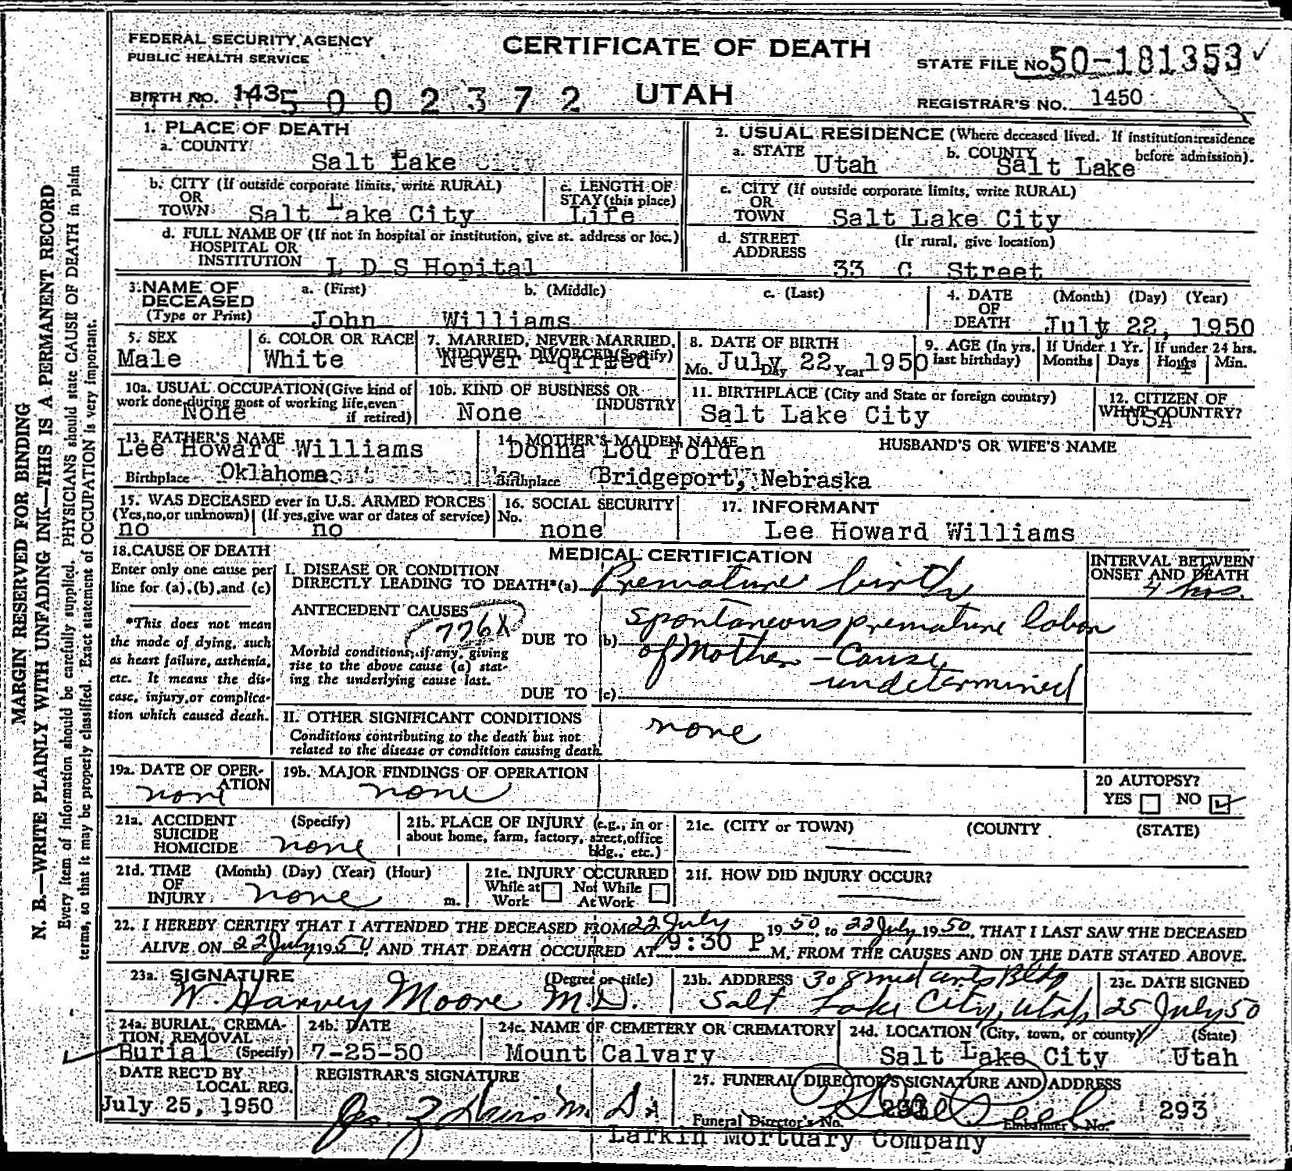 FEDERAL SECURITY AGENCY
PUBLIC HEALTH SERVICE
CERTIFICATE OF DEATH
STATE FILE NO. 50-181353
BIRTH NO. 143 5 0 0 2 3 7 2
UTAH
REGISTRAR'S NO. 1450
MARGIN RESERVED FOR BINDING
N. B.—WRITE PLAINLY WITH UNFADING INK—THIS IS A PERMANENT RECORD
Every item of information should be carefully supplied. PHYSICIANS should state CAUSE OF DEATH in plain
terms, so that it may be properly classified. Exact statement of OCCUPATION is very important.
1. PLACE OF DEATH
a. COUNTY
Salt Lake City
2. USUAL RESIDENCE (Where deceased lived. If institution: residence before admission).
a. STATE Utah b. COUNTY Salt Lake
b. CITY (If outside corporate limits, write RURAL)
OR
TOWN Salt Lake City
c. LENGTH OF
STAY (this place)
Life
c. CITY (If outside corporate limits, write RURAL)
OR
TOWN Salt Lake City
d. FULL NAME OF (If not in hospital or institution, give st. address or loc.)
HOSPITAL OR
INSTITUTION L D S Hopital
d. STREET (If rural, give location)
ADDRESS
33 C Street
3. NAME OF
DECEASED
(Type or Print)
a. (First) b. (Middle) c. (Last)
John Williams
4. DATE (Month) (Day) (Year)
OF
DEATH July 22, 1950
5. SEX
Male
6. COLOR OR RACE
White
7. MARRIED, NEVER MARRIED,
WIDOWED, DIVORCED (Specify)
Never Married
8. DATE OF BIRTH
Mo. July Day 22 Year 1950
9. AGE (In yrs. last birthday)
If Under 1 Yr.
Months Days
If under 24 hrs.
Hours 4 Min.
10a. USUAL OCCUPATION (Give kind of
work done during most of working life, even
if retired)
None
10b. KIND OF BUSINESS OR
INDUSTRY
None
11. BIRTHPLACE (City and State or foreign country)
Salt Lake City
12. CITIZEN OF
WHAT COUNTRY?
USA
13. FATHER'S NAME
Lee Howard Williams
Birthplace Oklahoma
14. MOTHER'S MAIDEN NAME
Donna Lou Folden
Birthplace Bridgeport, Nebraska
HUSBAND'S OR WIFE'S NAME
15. WAS DECEASED ever in U.S. ARMED FORCES
(Yes, no, or unknown) (If yes, give war or dates of service)
no no
16. SOCIAL SECURITY
No.
none
17. INFORMANT
Lee Howard Williams
18. CAUSE OF DEATH
Enter only one cause per
line for (a), (b), and (c)
*This does not mean
the mode of dying, such
as heart failure, asthenia,
etc. It means the dis-
ease, injury, or complica-
tion which caused death.
MEDICAL CERTIFICATION
I. DISEASE OR CONDITION
DIRECTLY LEADING TO DEATH* (a) Premature birth
INTERVAL BETWEEN
ONSET AND DEATH
4 hrs.
ANTECEDENT CAUSES
776X
Morbid conditions, if any, giving
rise to the above cause (a) stat-
ing the underlying cause last.
DUE TO (b) spontaneous premature labor
of Mother - Cause
undetermined
DUE TO (c)
II. OTHER SIGNIFICANT CONDITIONS
Conditions contributing to the death but not
related to the disease or condition causing death.
none
19a. DATE OF OPER-
ATION
none
19b. MAJOR FINDINGS OF OPERATION
none
20 AUTOPSY?
YES NO
21a. ACCIDENT (Specify)
SUICIDE
HOMICIDE none
21b. PLACE OF INJURY (e.g., in or
about home, farm, factory, street, office
bldg., etc.)
21c. (CITY or TOWN) (COUNTY (STATE)
21d. TIME (Month) (Day) (Year) (Hour)
OF
INJURY none m.
21e. INJURY OCCURRED
While at Work Not While At Work
21f. HOW DID INJURY OCCUR?
22. I HEREBY CERTIFY THAT I ATTENDED THE DECEASED FROM 22 July 1950, to 22 July 1950, THAT I LAST SAW THE DECEASED
ALIVE ON 22 July 1950, AND THAT DEATH OCCURRED AT 9:30 P M, FROM THE CAUSES AND ON THE DATE STATED ABOVE.
23a. SIGNATURE (Degree or title)
W. Harvey Moore M.D.
23b. ADDRESS 308 Med arts Bldg
Salt Lake City, Utah
23c. DATE SIGNED
25 July 50
24a. BURIAL, CREMA-
TION, REMOVAL
Burial (Specify)
24b. DATE
7-25-50
24c. NAME OF CEMETERY OR CREMATORY
Mount Calvary
24d. LOCATION (City, town, or county) (State)
Salt Lake City Utah
DATE REC'D BY
LOCAL REG.
July 25, 1950
REGISTRAR'S SIGNATURE
25. FUNERAL DIRECTOR'S SIGNATURE AND ADDRESS
293
Funeral Director's No. Embalmer's No.
Larkin Mortuary Company